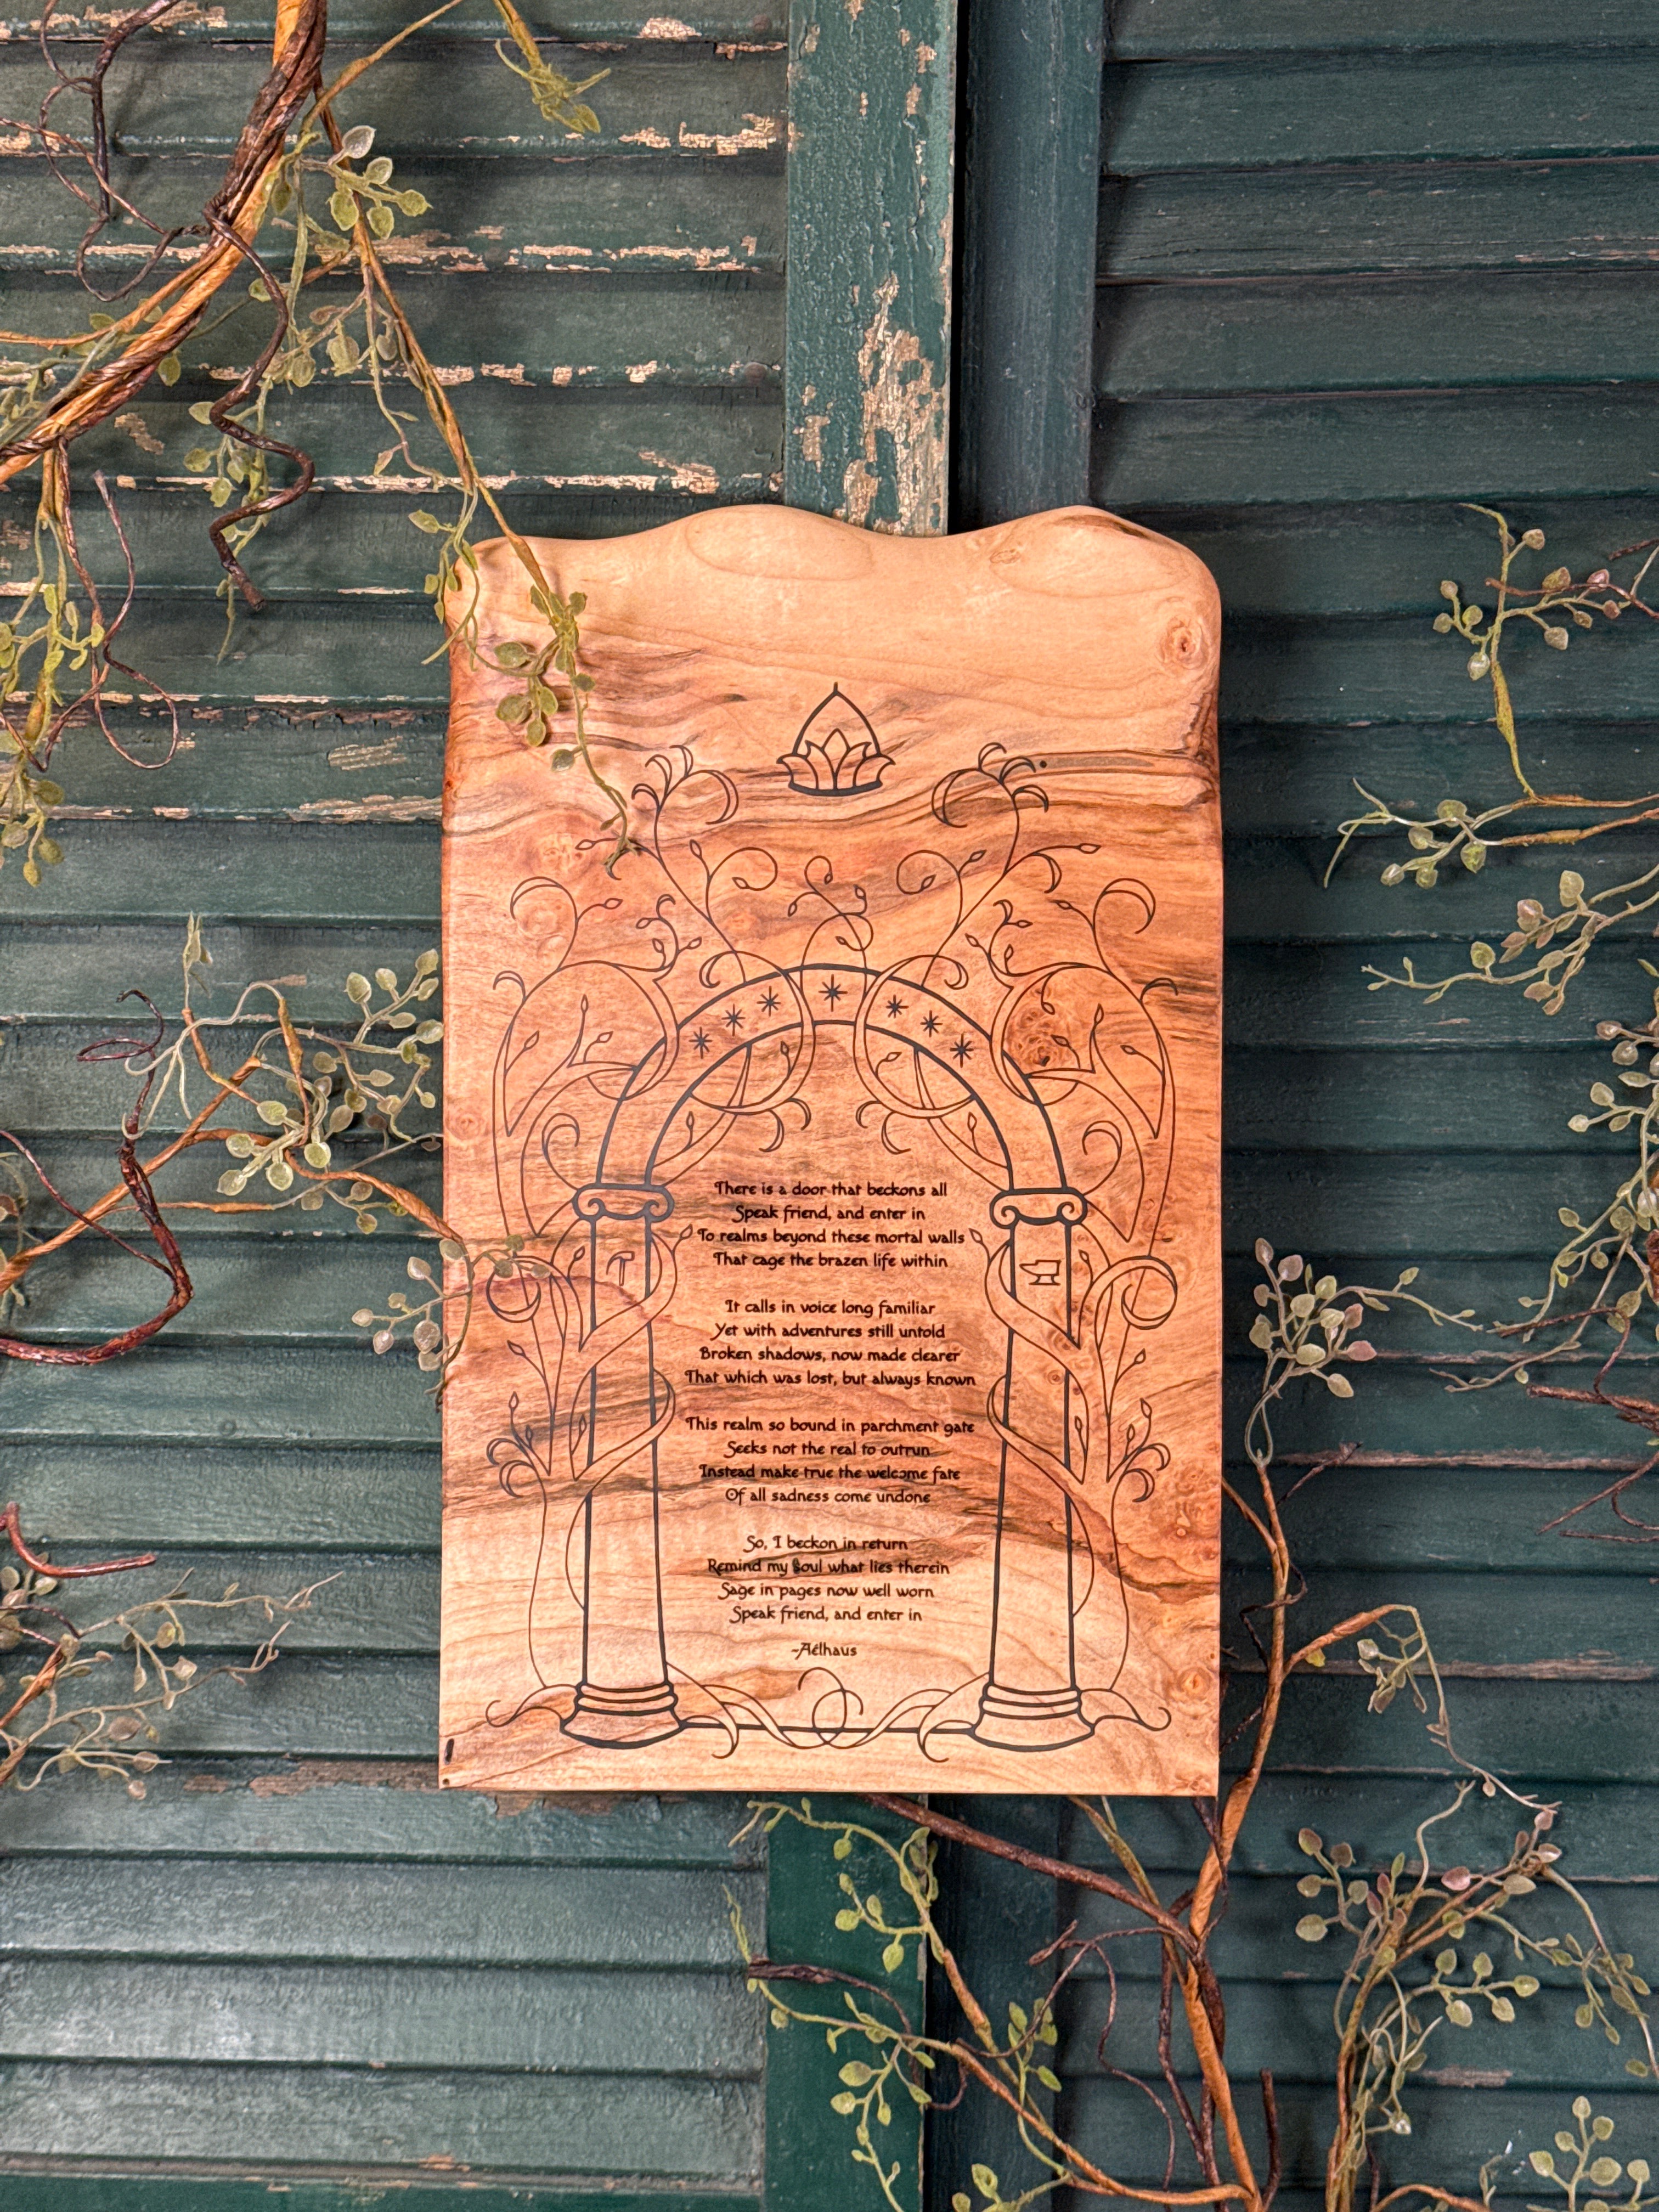 There is a door that beckons all
Speak friend, and enter in
To realms beyond these mortal walls
That cage the brazen life within
It calls in voice long familiar
Yet with adventures still untold
Broken shadows, now made clearer
That which was lost, but always known
This realm so bound in parchment gate
Seeks not the real to outrun
Instead make true the welcome fate
Of all sadness come undone
So, I beckon in return
Remind my soul what lies therein
Sage in pages now well worn
Speak friend, and enter in
-Aelhaus